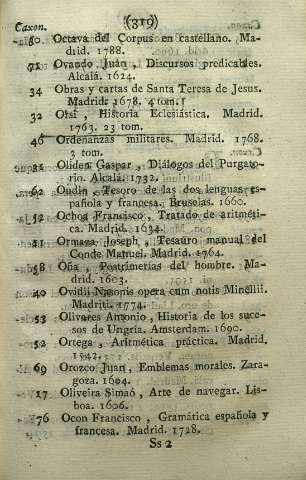 Caxon. (319)
50. Octava del Corpus en castellano. Ma-
drid. 1788.
Ovando Juan, Discursos predicables.
Alcalá. 1624.
34 Obras y cartas de Santa Teresa de Jesus.
Madrid. 1678. 4 tom.
32 Orsi, Historia Eclesiástica. Madrid.
1763. 23 tom.
46 Ordenanzas militares. Madrid. 1768.
3 tom.
Oliden Gaspar, Diálogos del Purgato-
rio. Alcalá. 1732.
62 Oudin, Tesoro de las dos lenguas es-
pañola y francesa. Bruselas. 1660.
52 Ochoa Francisco, Tratado de aritméti-
ca. Madrid. 1634.
Ormaza Joseph, Tesauro manual del
Conde Manuel. Madrid. 1764.
58 Oña, Postrimerías del hombre. Ma-
drid. 1603.
40 Ovidii Nasonis opera cum notis Minellii.
Madriti. 1774.
53 Olivares Antonio, Historia de los suce-
sos de Ungría. Amsterdam. 1690.
52 Ortega, Aritmética práctica. Madrid.
1542.
69 Orozco Juan, Emblemas morales. Zara-
goza. 1604.
17 Oliveira Simaó, Arte de navegar. Lis-
boa. 1606.
76 Ocon Francisco, Gramática española y
francesa. Madrid. 1728.
Ss 2